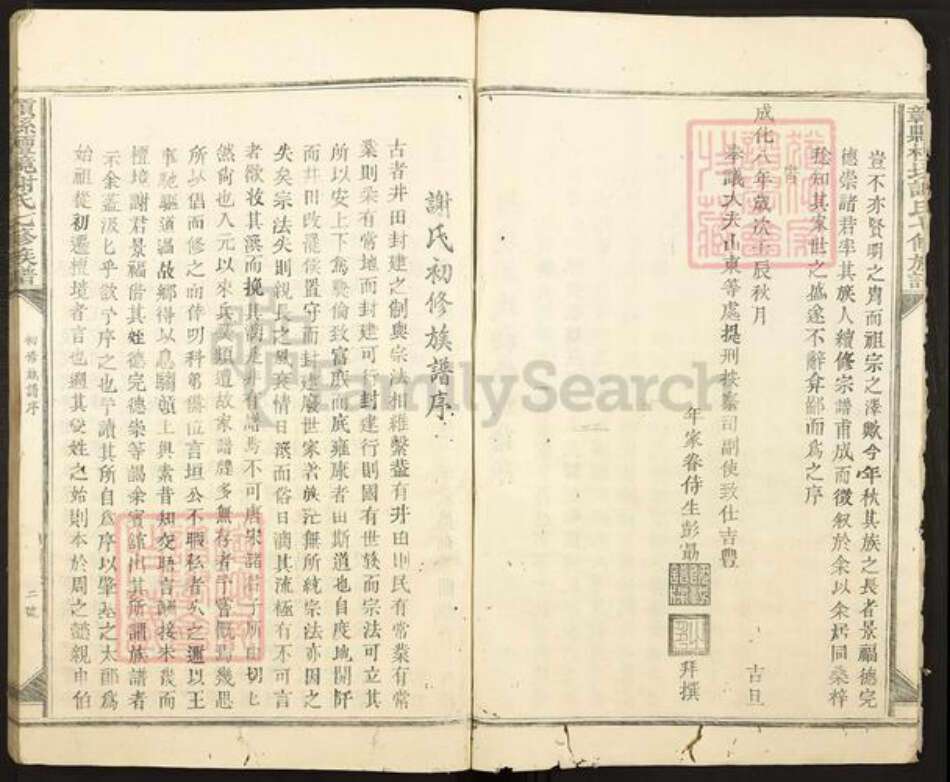 豈不亦賢明之冑而祖宗之澤歟今年秋其族之長者景福德完
德崇諸君率其族人續修宗譜甫成而徵叙於余以余居同桑梓
稔知其家世之盛遂不辭弇鄙而爲之序
成化八年歲次壬辰秋月 吉旦
奉議大夫山東等處提刑按察司副使致仕吉豐
年家眷侍生彭 拜撰
謝氏初修族譜序
古者井田封建之制與宗法相維繫葢有井田則民有常業有常
業則衆有常地而封建可行封建行則國有世族而宗法可立其
所以安上下敦彝倫致富庶而底雍康者由斯道也自度地開阡
而井田改罷侯置守而封建廢世家者族茫無所統宗法亦因之
失矣宗法失則親長之風衰情日漠而俗日漓其流極有不可言
者欲收其漠而挽其漓是非有譜焉不可唐宋諸君子所由切切
然尚也入元以來兵燹頻遭故家譜牒多無存者予嘗慨焉幾思
所以倡而修之而倖叨科第儤位言垣公不暇私者久之邇以王
事馳驅道過故鄉得以息驂嶺上與素昔知交晤言
檀境謝君景福偕其姓德完德崇等謁余賓館出其所謂族譜者
示余葢汲匕乎欲予序之也予讀其所自爲序以肇基之太郎爲
始祖從初遷檀境者言也遡其受姓之始則本於周之懿親申伯
初修族譜序
二號
謝氏七修族譜
FamilySearch